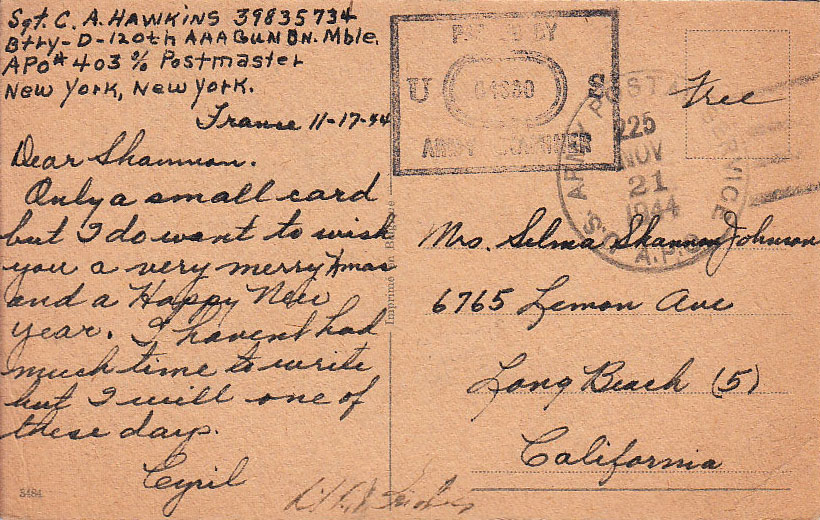 Sgt. C. A. HAWKINS 39835734
Btry-D-120th AAA GUN BN. Mble.
APO# 403 c/o Postmaster
New York, New York.
France 11-17-44
Dear Shannon.
Only a small card
but I do want to wish
you a very merry Xmas
and a Happy New
year. I havent had
much time to write
but I will one of
these days.
Cyril
S484
Imprimé en Belgique
PASSED BY
U S
ARMY EXAMINER
Free
U.S. ARMY POSTAL SERVICE
A.P.O.
225
NOV
21
1944
Mrs. Selma Shannon Johnson
6765 Lemon Ave
Long Beach (5)
California